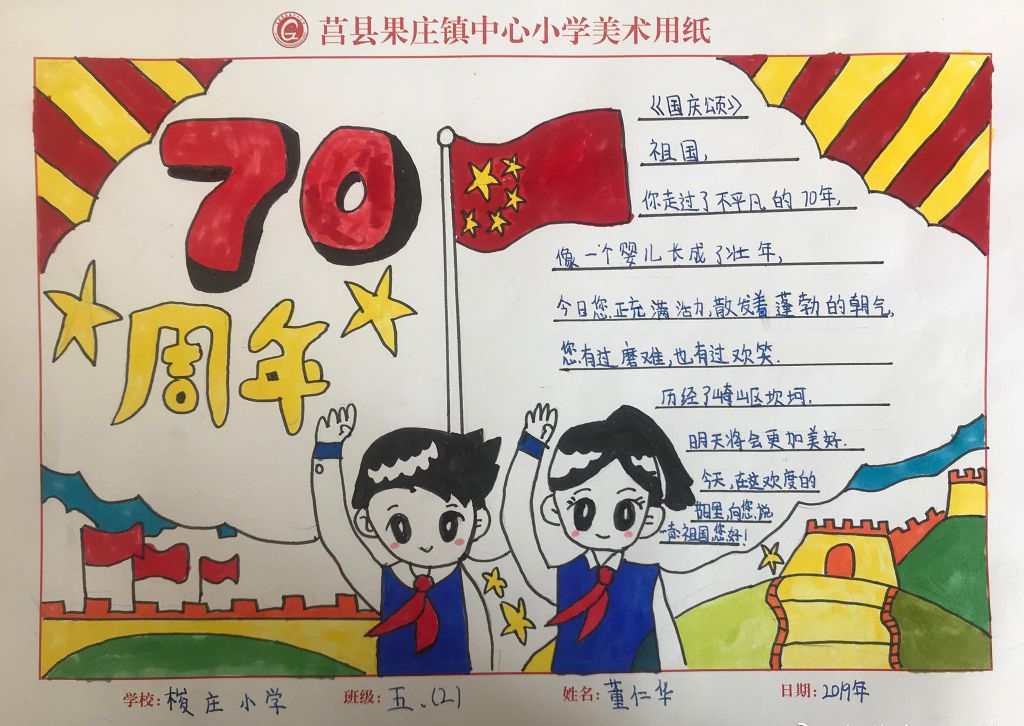 莒县果庄镇中心小学美术用纸
70
周年
《国庆颂》
祖国,
你走过了不平凡的70年,
像一个婴儿长成了壮年,
今日您正充满活力,散发着蓬勃的朝气,
您有过磨难,也有过欢笑.
历经了崎岖坎坷,
明天将会更加美好.
今天,在这欢度的
里,向您说
祖国您好!
学校: 庄小学
班级: 五.(2)
姓名: 董仁华
日期: 2019年